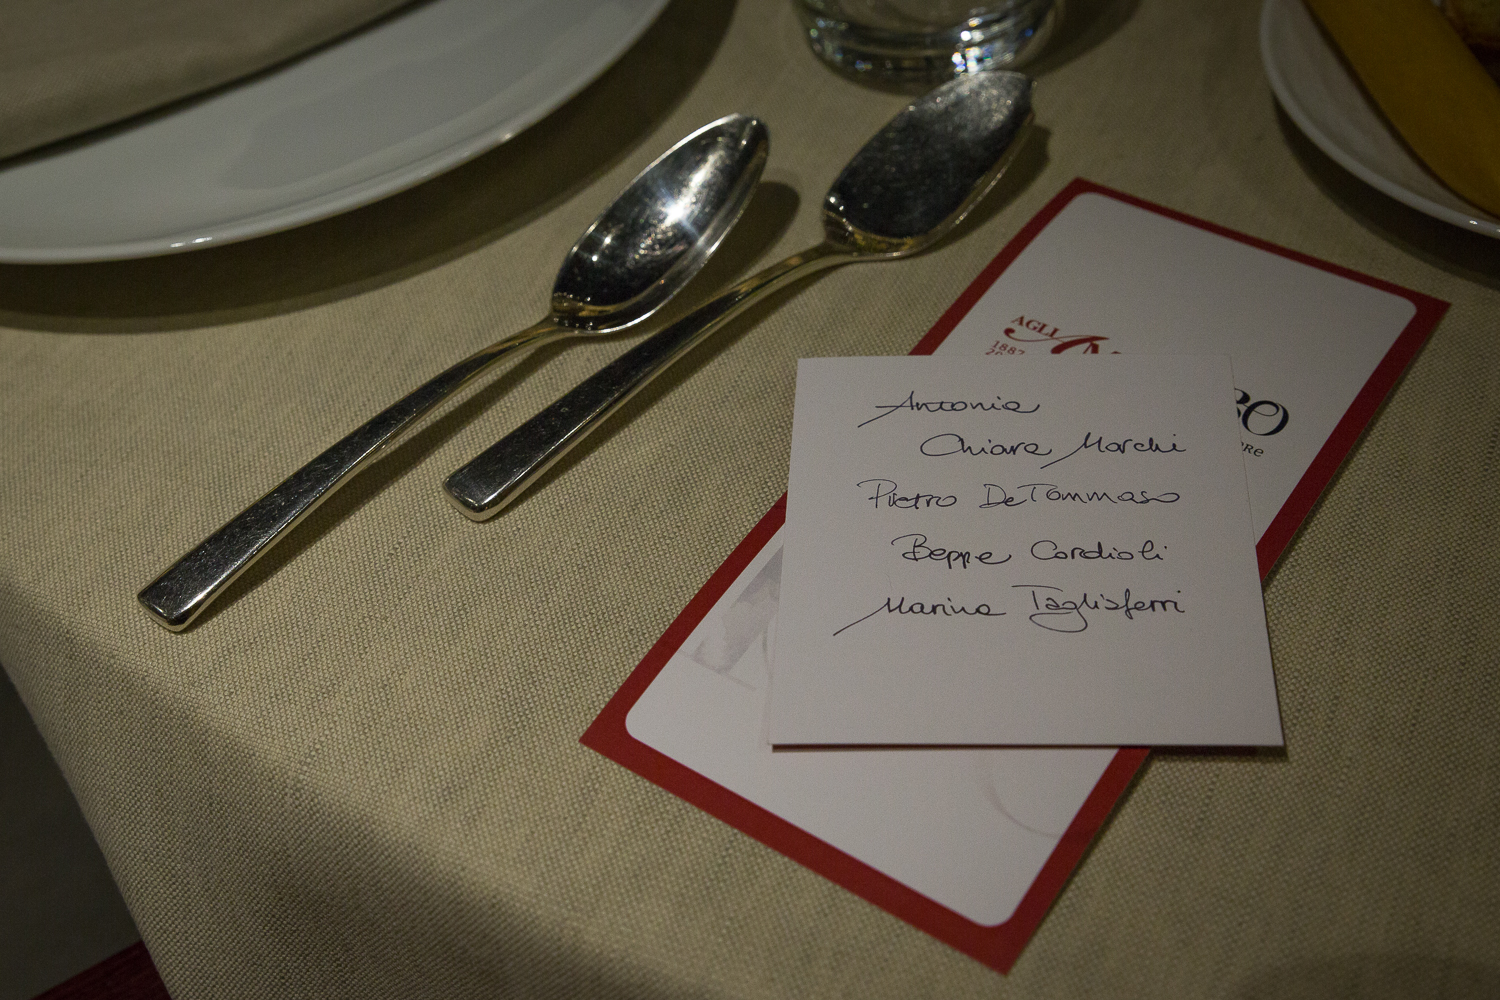 AGLI
1887
Antonia
Chiara Marchi
Pietro De Tommaso
Beppe Cordioli
Marina Tagliaferri